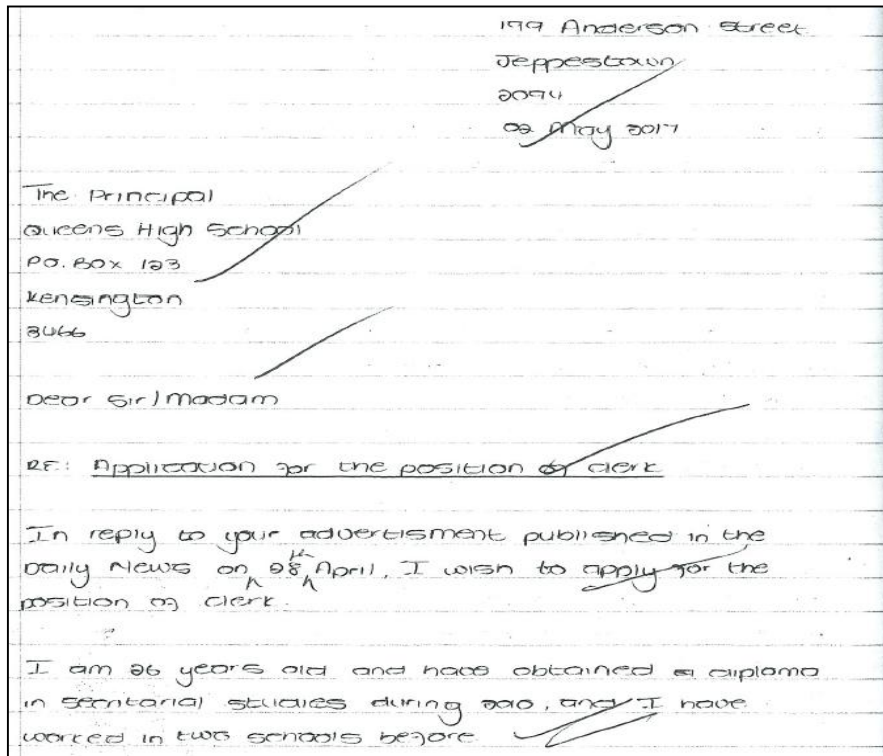 199 Anderson Street
Jeppestown
2094
02 May 2017
The Principal
Queens High School
P.O. Box 123
Kensington
3466
Dear Sir/Madam
RE: Application for the position of clerk
In reply to your advertisment published in the
Daily News on 28 April, I wish to apply for the
position of clerk.
I am 26 years old and have obtained a diploma
in secritarial studies during 2010, and I have
worked in two schools before